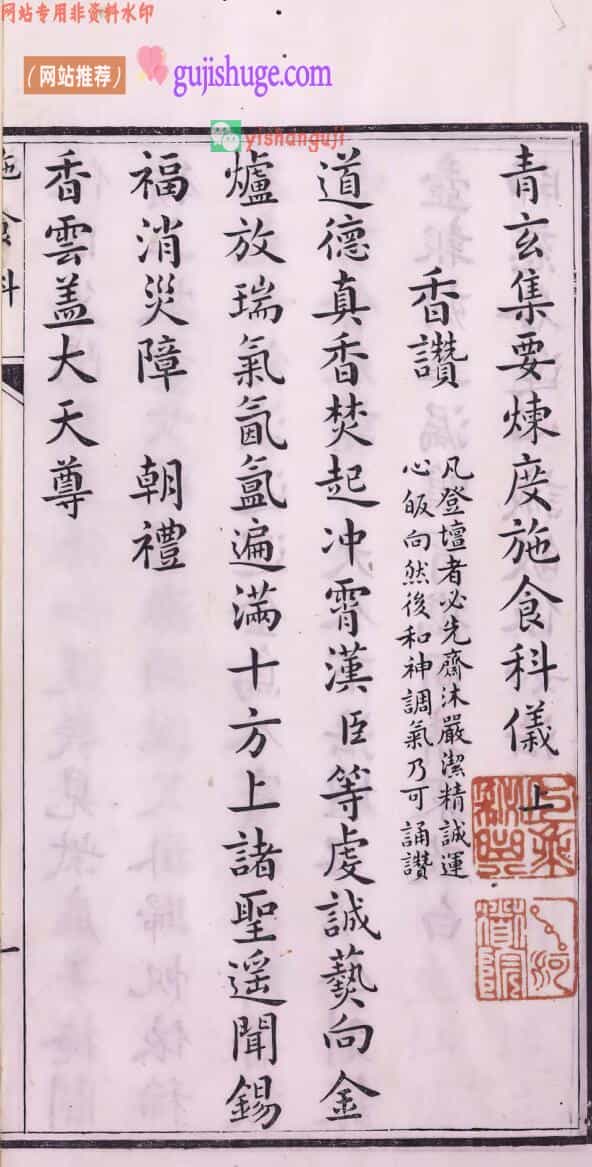 网站专用非资料水印
（网站推荐）
gujishuge.com
yishanguji
青玄集要煉度施食科儀 上
香讚
凡登壇者必先齋沐嚴潔精誠運
心皈向然後和神調氣乃可誦讚
道德真香焚起冲霄漢臣等虔誠爇向金
爐放瑞氣氤氳遍滿十方上諸聖遥聞錫
福消災障 朝禮
香雲盖大天尊
施食科
一